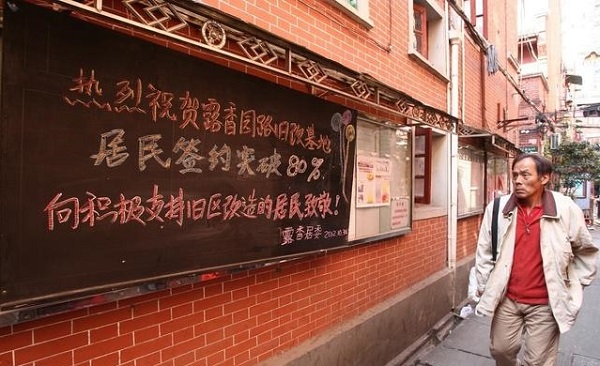 热烈祝贺露香园路旧改基地
居民签约突破80%
向积极支持旧区改造的居民致敬!
露香居委 2012.10.30